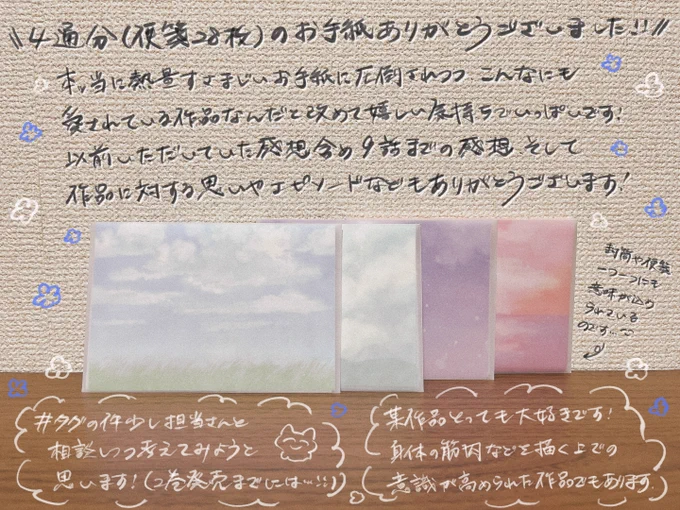 \\4通分(便箋28枚)のお手紙ありがとうございました!!//
本当に熱量すさまじいお手紙に圧倒されつつ こんなにも
愛されている作品なんだと改めて嬉しい気持ちでいっぱいです!
以前いただいていた感想含め9話までの感想 そして
作品に対する思いやエピソードなどもありがとうございます!
封筒や便箋
一つ一つにも
意味が込め
られている
のです…
#タグの件少し担当さんと
相談しつつ考えてみようと
思います!(2巻発売までには…!!)
某作品とっても大好きです!
身体の筋肉などを描く上での
意識が高められた作品でもあります